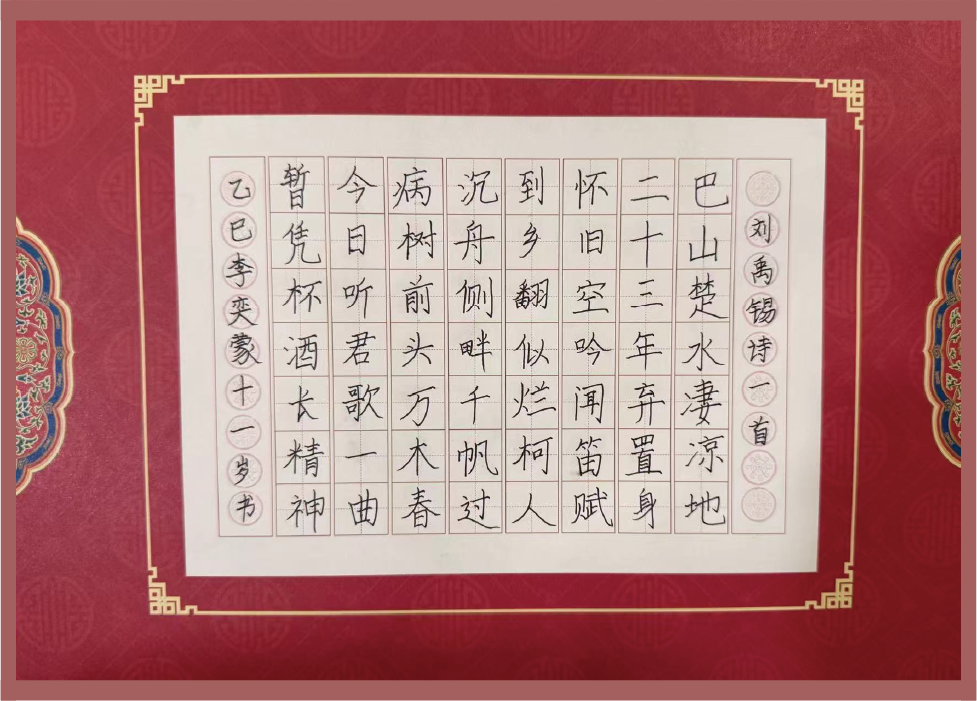 刘禹锡诗一首
巴山楚水凄凉地
二十三年弃置身
怀旧空吟闻笛赋
到乡翻似烂柯人
沉舟侧畔千帆过
病树前头万木春
今日听君歌一曲
暂凭杯酒长精神
乙巳李奕蒙十一岁书